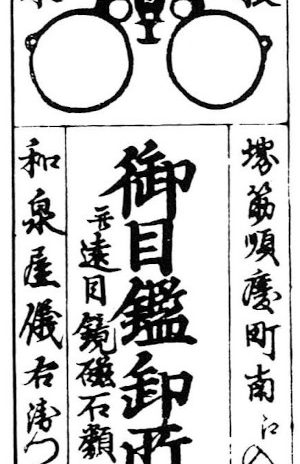 堺筋順慶町南江入
御目鑑卸所
并遠目鏡磁石類
和泉屋儀右衛門